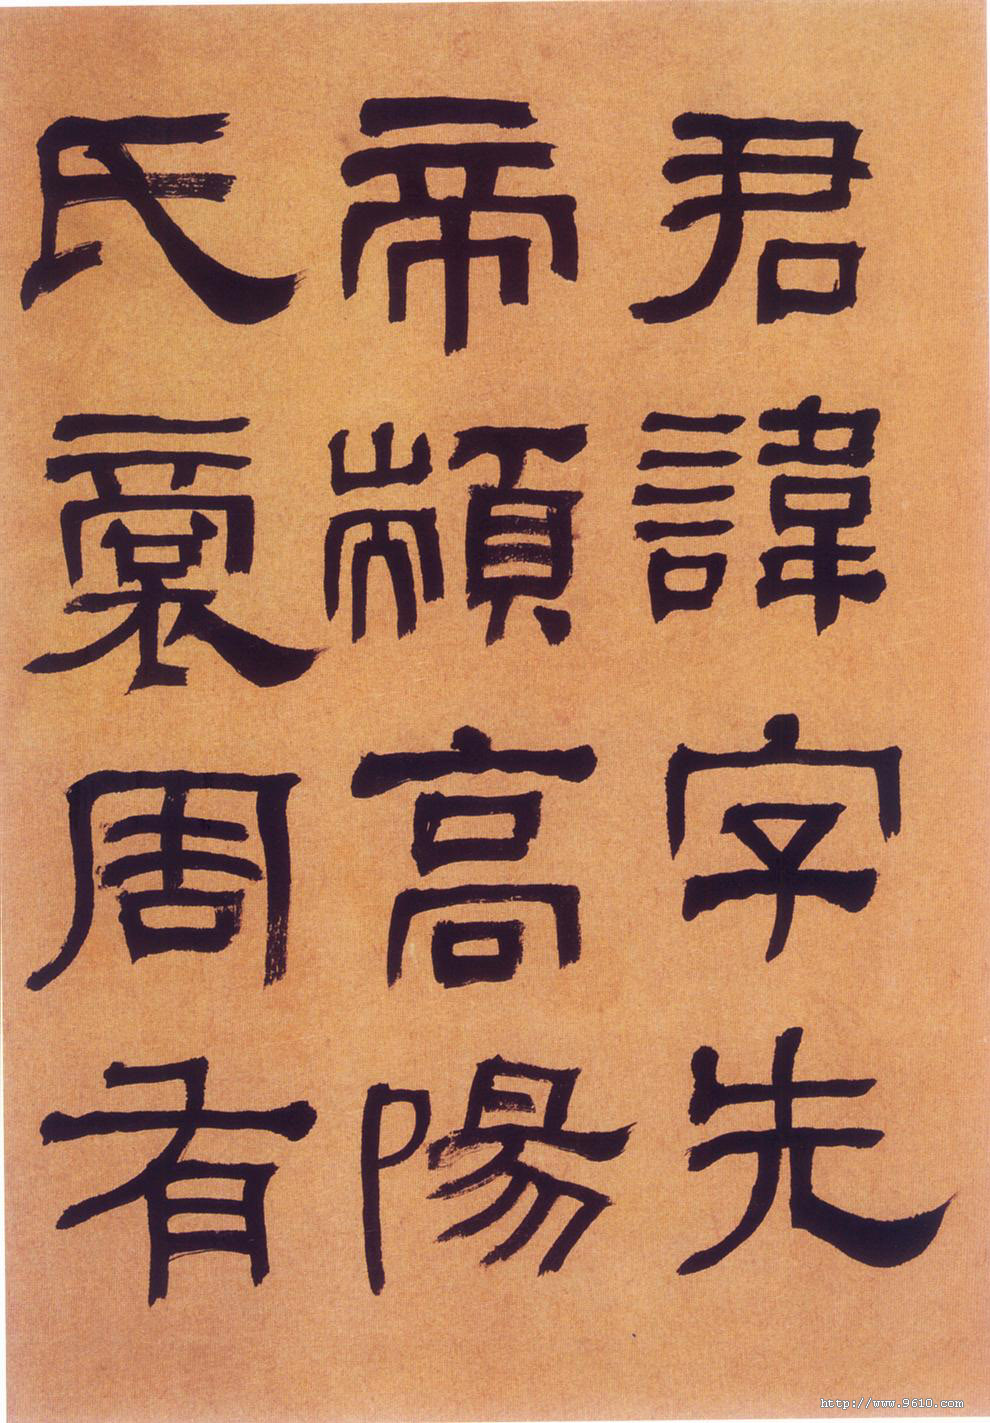 君諱字先
帝顓高陽
氏裔周有
http://www.9610.com